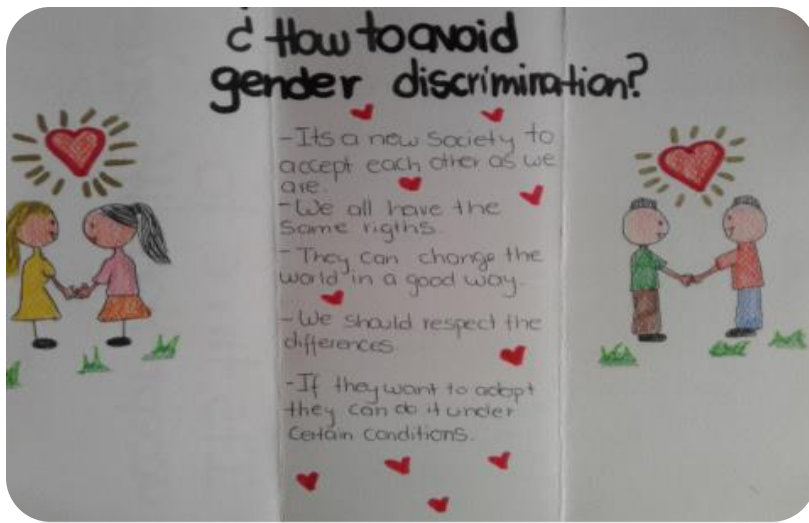 ¿ How to avoid
gender discrimination?
-Its a new society to
accept each other as we
are.
-We all have the
same rigths.
- They can change the
world in a good way.
-We should respect the
differences
-If they want to adopt
they can do it under
certain conditions.